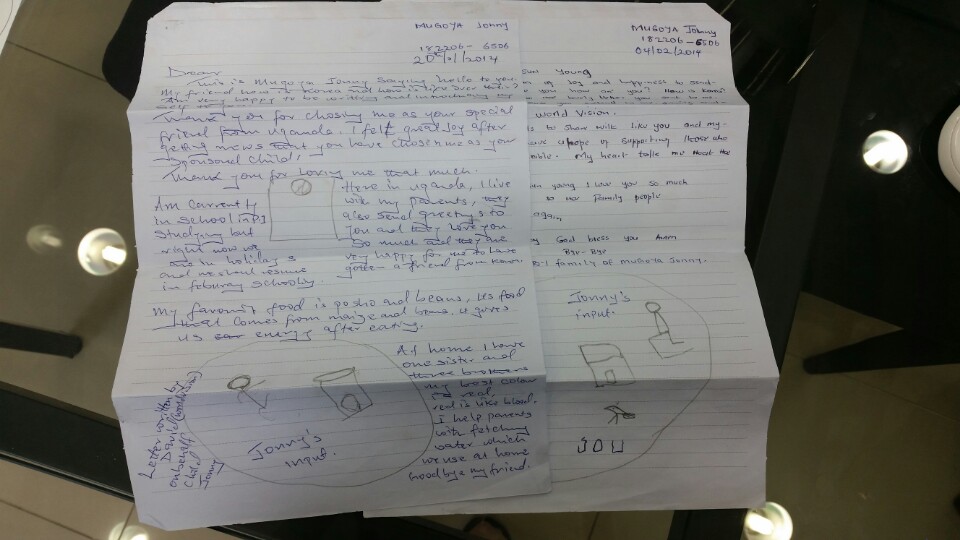 MUGOYA Jonny
182206 - 6506
20/01/2014
This is Mugoya Jonny Saying hello to you.
My friend how is Korea and how is life over there?
Am very happy to be writing and introducing my
Thank you for chosing me as your special
friend from Uganda. I felt great Joy after
getting news that you have chosen me as your
Sponsored child!
Thank you for Loving me that much.
Here in Uganda, I live
with my parents, they
also send greetings to
you and they Love you
So much and they are
very happy for me to have
gotten a friend from Korea.
Am currently
in School in P3
Studying but
right now we
are in holidays
and we shall resume
in febuary School.
My favourit food is posho and beans, its food
that comes from maize and beans. it gives
us energy after eating.
At home I have
one sister and
three brothers
my best colour
red,
red is like blood.
I help parents
with fetching
water which
we use at home
Goodbye my friend.
Jonny's
input.
Letter written by
onbehalf
Child
Jonny
MUGOYA Johnny
182206-6506
04/02/2014
Young
of joy and happiness to send
you how are you? How is Korea?
World Vision.
to share with like you and my
hope in supporting those who
My heart tells me that the
young I love you so much
family people
again,
God bless you Amen
Bye-Bye
family of Mugoya Jonny.
Jonny's
input.